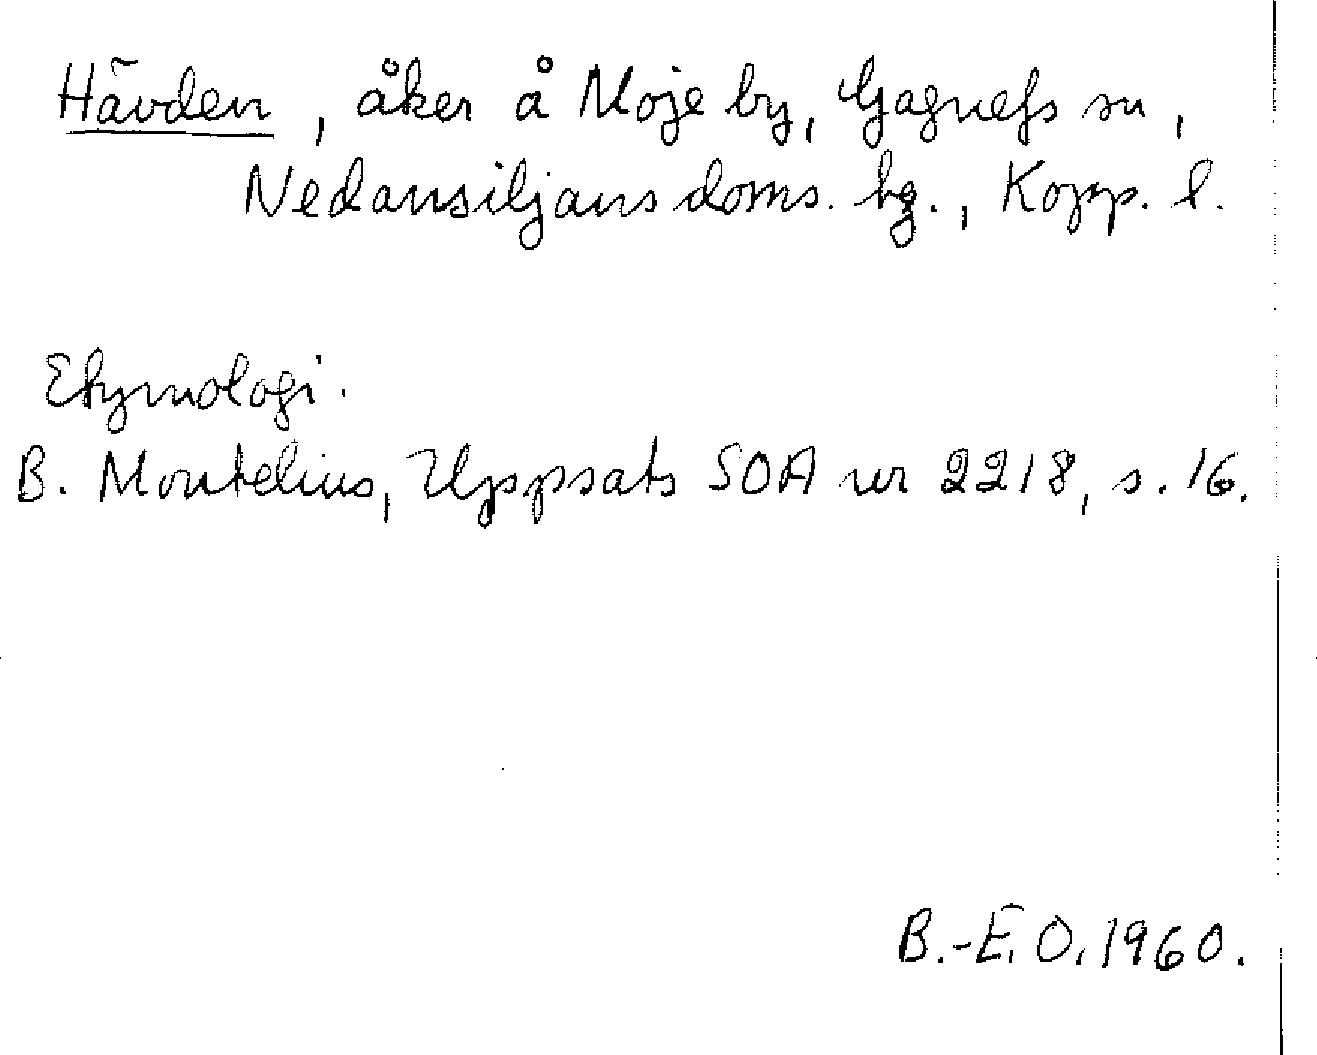 Hävden, åker å Moje by, Gagnefs sn,
Nedansiljans doms. hg., Kopp. l.
Etymologi.
B. Montelius, Uppsats SOA nr 2218, s. 16.
B.-E. O. 1960.